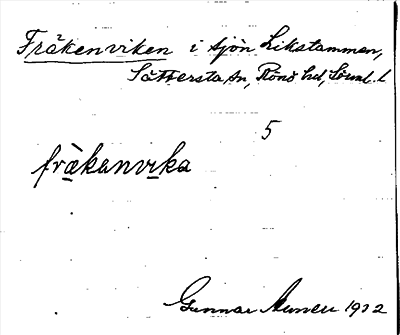 Fräkenviken i sjön Likstammen,
Sättersta sn, Rönö hd, Söuml. l
5
fràkanvika
Gunnar 1912